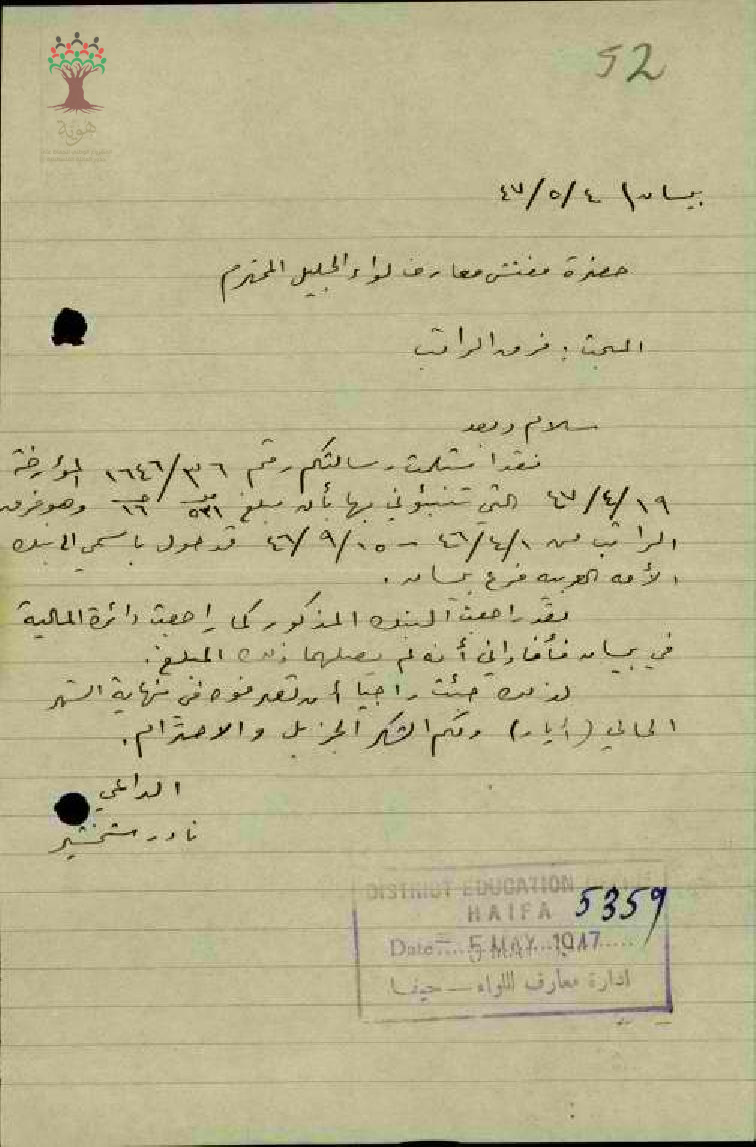 52
هوية
بيسان ٤/٥/٤٧
حضرة مفتش معارف لواء الجليل المحترم
المبحث : فرق الراتب
سلام وبعد
فقد استلمت رسالتكم رقم ١٦٤٦/٣٦ المؤرخة
١٩/٤/٤٧ التي تنبؤني بها بأن مبلغ ٥٣١ ١٦ وهو فرق
الراتب من ١/٤/٤٦ - ١٥/٩/٤٦ قد حول باسمي الى بنك
الأمة العربية فرع بيسان.
لقد راجعت البنك المذكور كما راجعت دائرة المالية
في بيسان فأفاداني أنه لم يصلهما ذلك المبلغ.
لذلك جئت راجيا أن تصرفوه في نهاية الشهر
الحالي (أيار) ولكم الشكر الجزيل والاحترام.
الداعي
نادر
DISTRICT EDUCATION
HAIFA 5359
Date 5 MAY 1947
ادارة معارف اللواء - حيفا